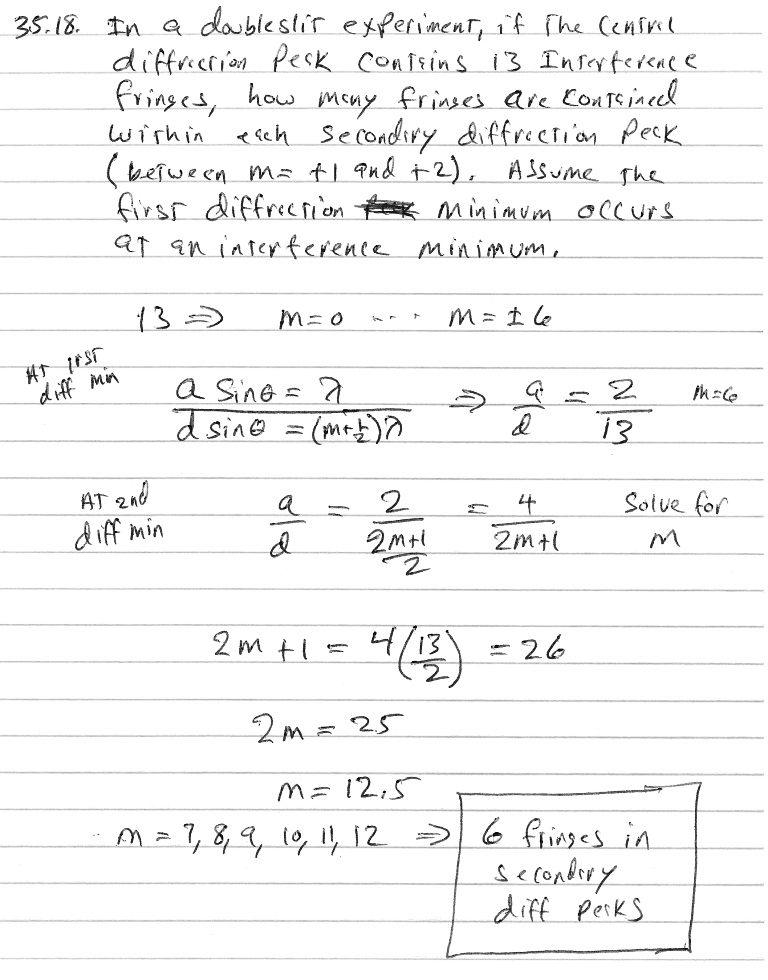 35.18. In a doubleslit experiment, if the central
diffraction peak contains 13 Interference
fringes, how many fringes are contained
within each secondary diffraction peak
(between m= +1 and +2). Assume the
first diffraction minimum occurs
at an interference minimum.
13 ⇒ m=0 ... m=±6
At 1rst
diff min
a sinθ = λ ⇒ a = 2 m=6
d sinθ = (m+½)λ d 13
At 2nd
diff min
a/d = 2/((2m+1)/2) = 4/(2m+1) Solve for
m
2m+1 = 4(13/2) = 26
2m = 25
m = 12.5
m = 7, 8, 9, 10, 11, 12 ⇒ 6 fringes in
secondary
diff peaks